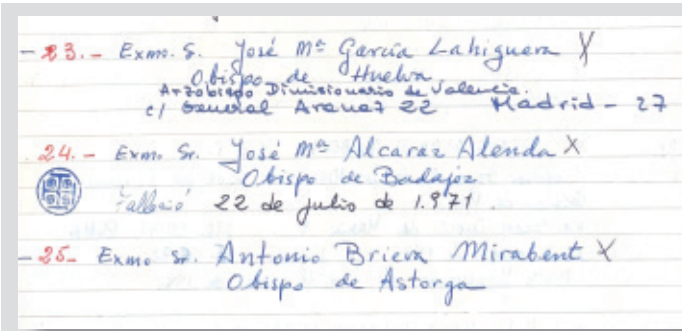 - 23.- Exmo. S. José Mª García Lahiguera X
Obispo de Huelva
Arzobispo Dimisionario de Valencia.
c/ General Aranaz 22 Madrid - 27
24.- Exmo. Sr. José Mª Alcaraz Alenda X
Obispo de Badajoz
Falleció 22 de julio de 1.971.
- 25- Exmo Sr. Antonio Brieva Mirabent X
Obispo de Astorga